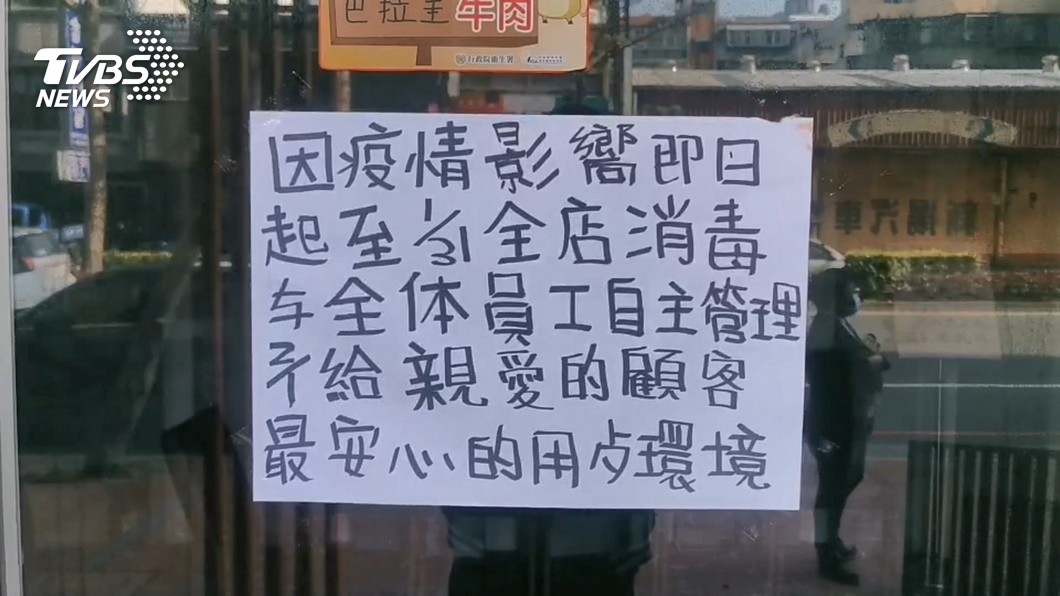 TVBS
NEWS
巴拉圭牛肉
行政院衛生署
因疫情影嚮即日
起至1/31全店消毒
与全体員工自主管理
予給親愛的顧客
最安心的用歺環境
汽車